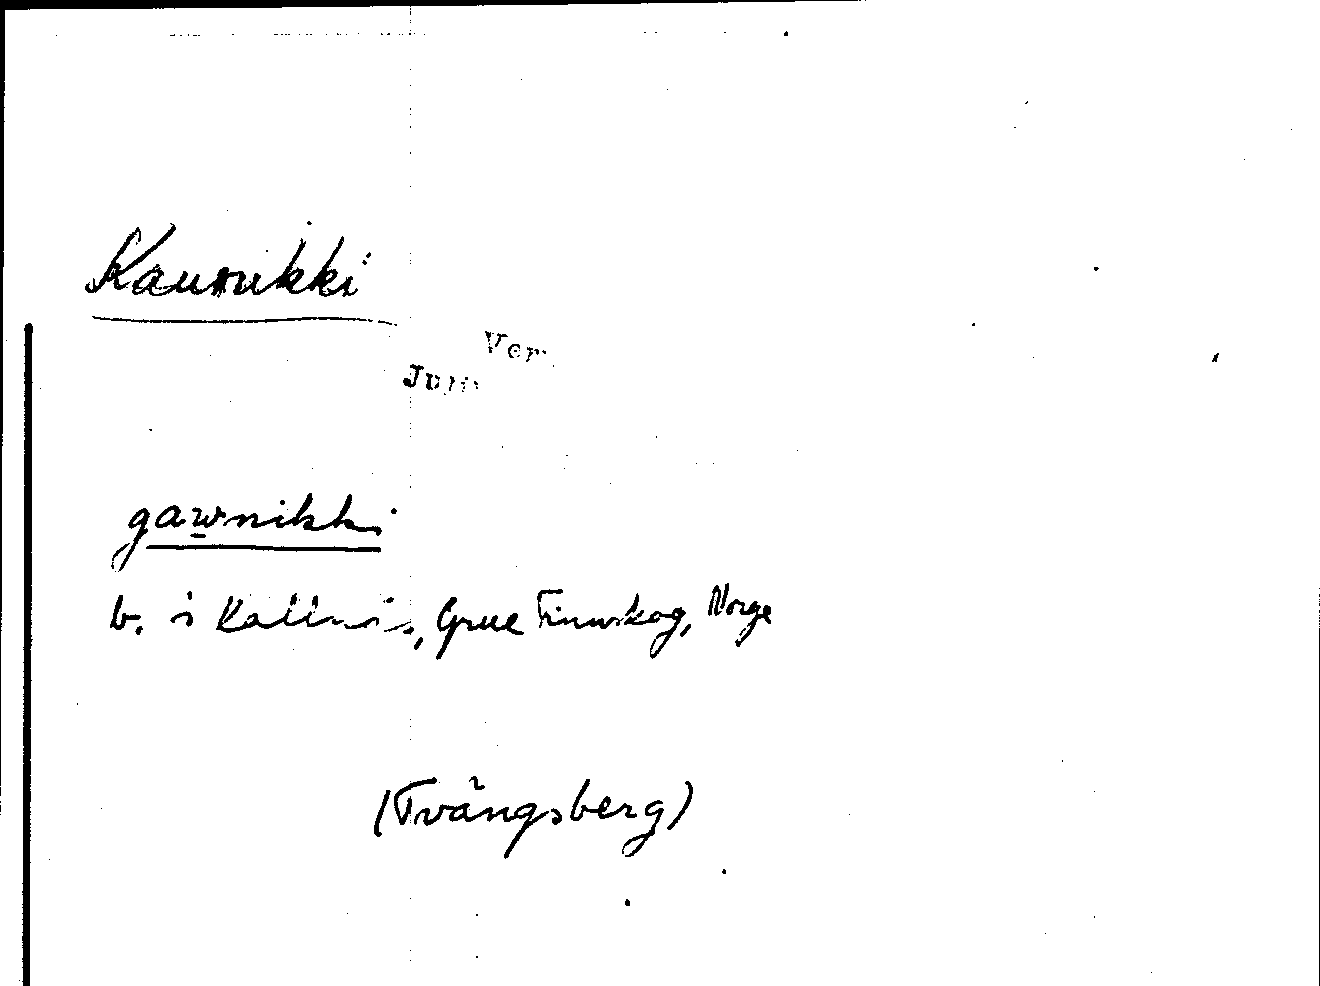 Kaunikki
Ver
gawnikki
b. i Kallnäs, Grue Finnskog, Norge
(Tvängsberg)